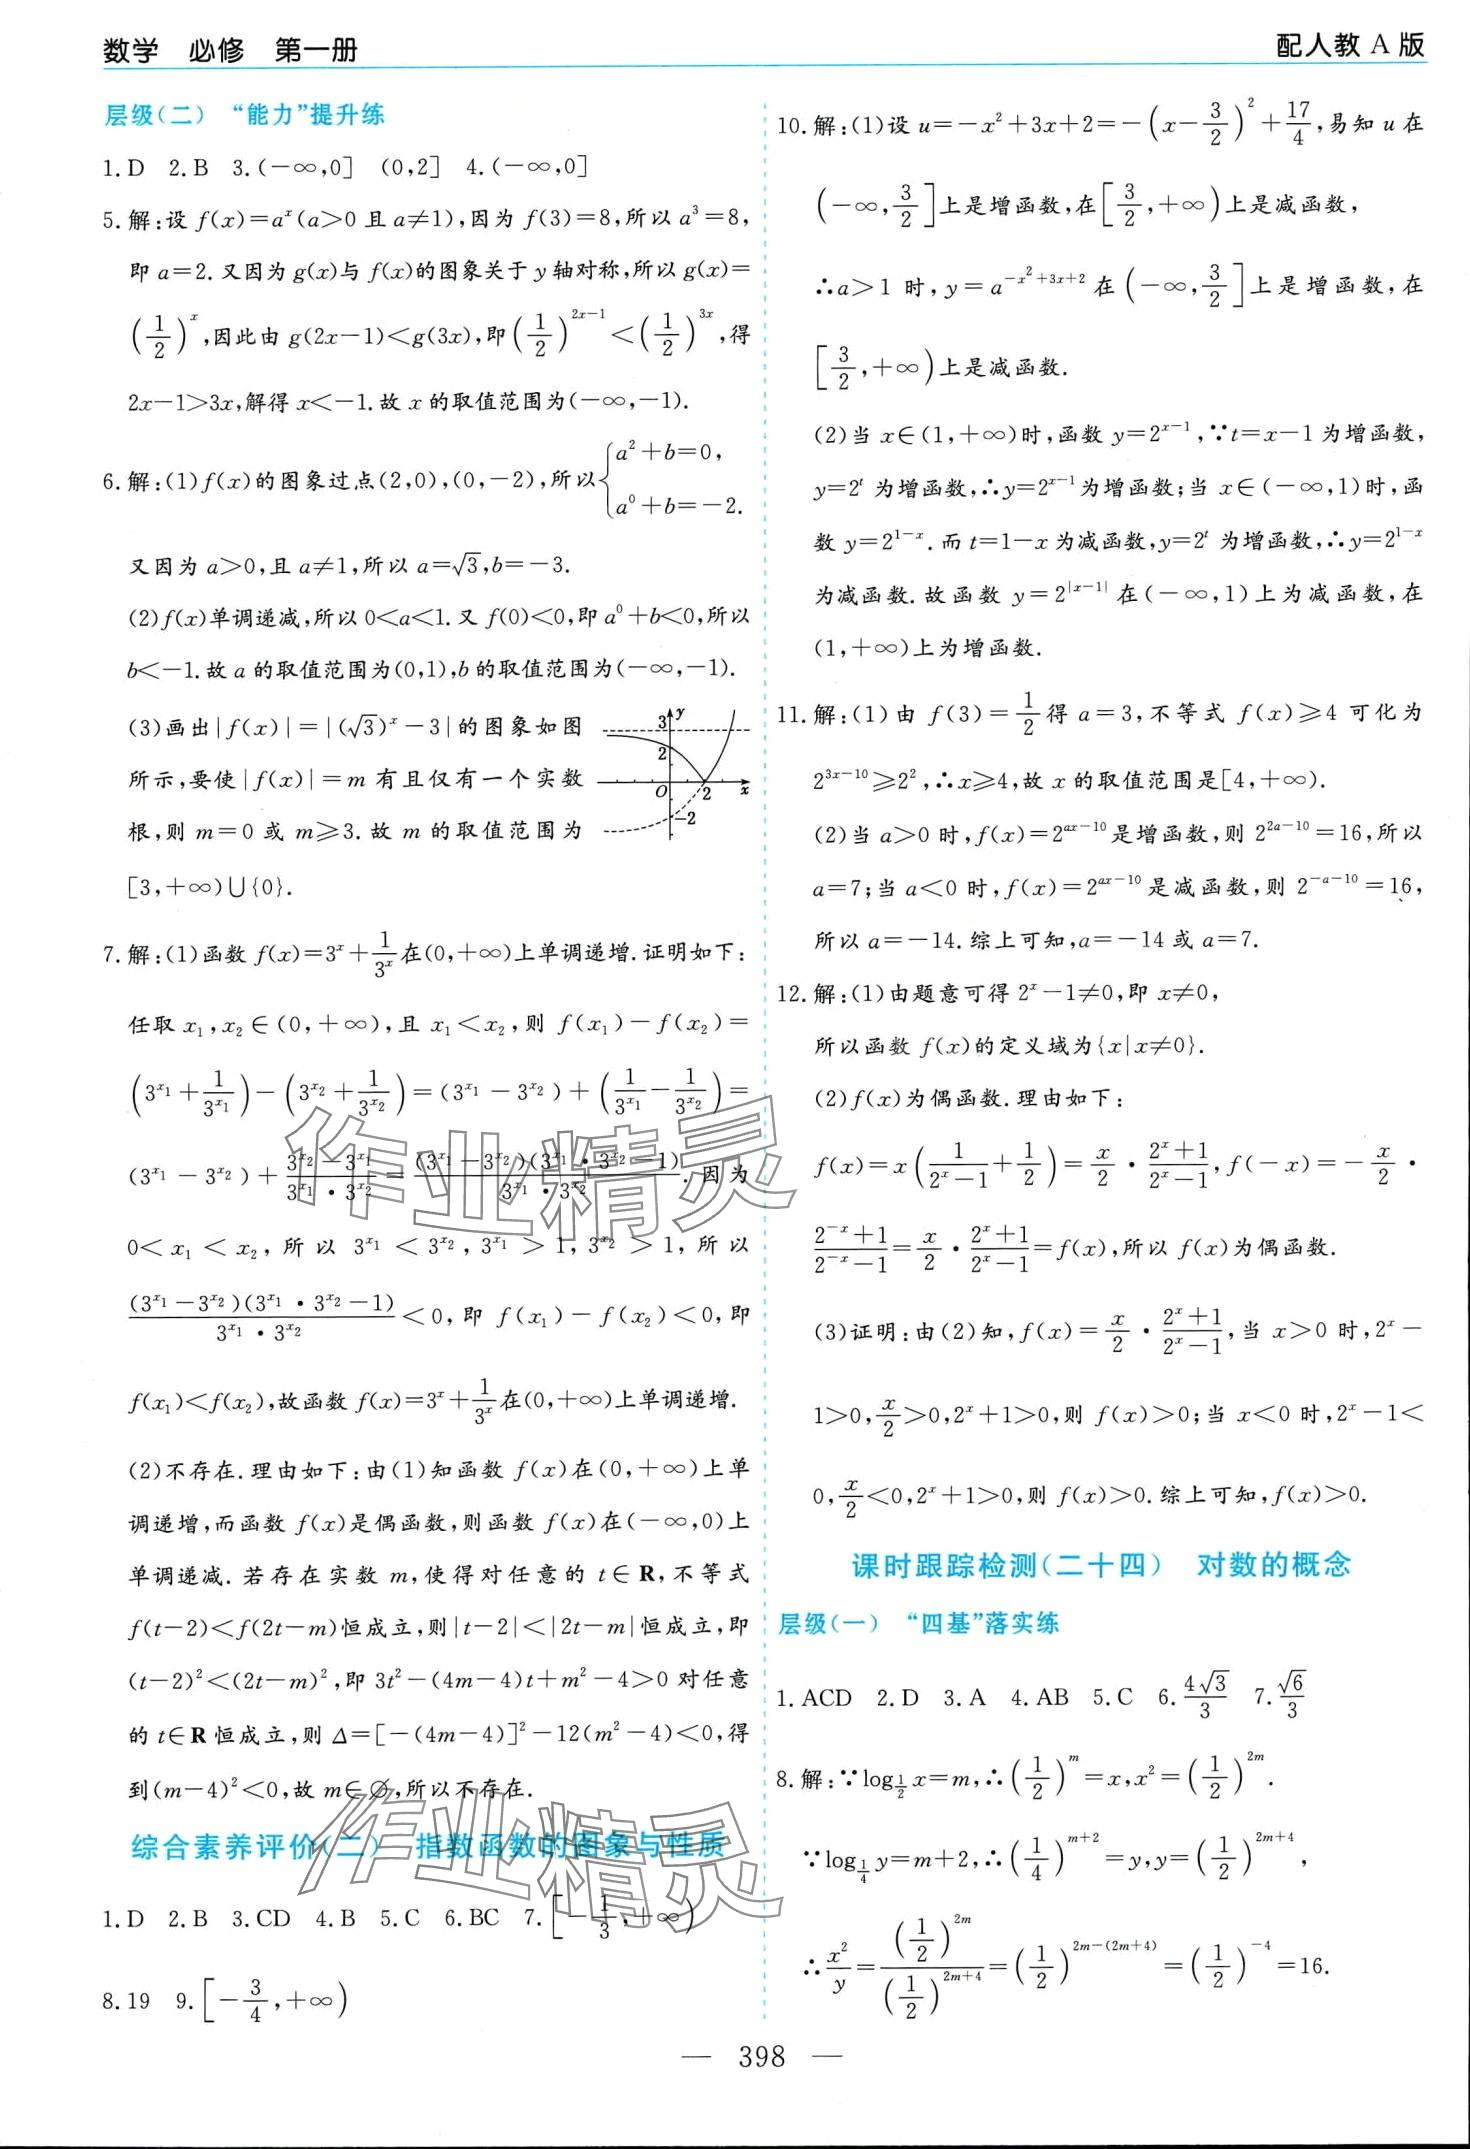 数学 必修 第一册
配人教 A 版
层级(二) “能力”提升练
1.D 2.B 3.(－∞,0] (0,2] 4.(－∞,0]
5.解:设 f(x)=a^x(a>0 且 a≠1),因为 f(3)=8,所以 a^3=8,
即 a=2.又因为 g(x)与 f(x)的图象关于 y 轴对称,所以 g(x)=
(1/2)^x,因此由 g(2x－1)<g(3x),即(1/2)^(2x－1)<(1/2)^(3x),得
2x－1>3x,解得 x<－1.故 x 的取值范围为(－∞,－1).
6.解:(1)f(x)的图象过点(2,0),(0,－2),所以{a^2+b=0, a^0+b=－2.
又因为 a>0,且 a≠1,所以 a=√3,b=－3.
(2)f(x)单调递减,所以 0<a<1.又 f(0)<0,即 a^0+b<0,所以
b<－1.故 a 的取值范围为(0,1),b 的取值范围为(－∞,－1).
(3)画出|f(x)|=|(√3)^x－3|的图象如图
所示,要使|f(x)|=m 有且仅有一个实数
根,则 m=0 或 m≥3.故 m 的取值范围为
[3,+∞)∪{0}.
3 y
2
O 2 x
－2
7.解:(1)函数 f(x)=3^x+1/3^x在(0,+∞)上单调递增.证明如下:
任取 x₁,x₂∈(0,+∞),且 x₁<x₂,则 f(x₁)－f(x₂)=
(3^x₁+1/3^x₁)－(3^x₂+1/3^x₂)=(3^x₁－3^x₂)+(1/3^x₁－1/3^x₂)=
(3^x₁－3^x₂)+(3^x₂－3^x₁)/(3^x₁·3^x₂)=(3^x₁－3^x₂)(3^x₁·3^x₂－1)/(3^x₁·3^x₂).因为
0<x₁<x₂,所以 3^x₁<3^x₂,3^x₁>1,3^x₂>1,所以
(3^x₁－3^x₂)(3^x₁·3^x₂－1)/(3^x₁·3^x₂)<0,即 f(x₁)－f(x₂)<0,即
f(x₁)<f(x₂),故函数 f(x)=3^x+1/3^x在(0,+∞)上单调递增.
(2)不存在.理由如下:由(1)知函数 f(x)在(0,+∞)上单
调递增,而函数 f(x)是偶函数,则函数 f(x)在(－∞,0)上
单调递减.若存在实数 m,使得对任意的 t∈R,不等式
f(t－2)<f(2t－m)恒成立,则|t－2|<|2t－m|恒成立,即
(t－2)^2<(2t－m)^2,即 3t^2－(4m－4)t+m^2－4>0 对任意
的 t∈R 恒成立,则 Δ=[－(4m－4)]^2－12(m^2－4)<0,得
到(m－4)^2<0,故 m∈∅,所以不存在.
综合素养评价(二) 指数函数的图象与性质
1.D 2.B 3.CD 4.B 5.C 6.BC 7.[－1/3,+∞)
8.19 9.[－3/4,+∞)
10.解:(1)设 u=－x^2+3x+2=－(x－3/2)^2+17/4,易知 u 在
(－∞,3/2]上是增函数,在[3/2,+∞)上是减函数,
∴a>1 时,y=a^(－x^2+3x+2)在(－∞,3/2]上是增函数,在
[3/2,+∞)上是减函数.
(2)当 x∈(1,+∞)时,函数 y=2^(x－1),∵t=x－1 为增函数,
y=2^t 为增函数,∴y=2^(x－1)为增函数;当 x∈(－∞,1)时,函
数 y=2^(1－x).而 t=1－x 为减函数,y=2^t 为增函数,∴y=2^(1－x)
为减函数.故函数 y=2^|x－1|在(－∞,1)上为减函数,在
(1,+∞)上为增函数.
11.解:(1)由 f(3)=1/2得 a=3,不等式 f(x)≥4 可化为
2^(3x－10)≥2^2,∴x≥4,故 x 的取值范围是[4,+∞).
(2)当 a>0 时,f(x)=2^(ax－10)是增函数,则 2^(2a－10)=16,所以
a=7;当 a<0 时,f(x)=2^(ax－10)是减函数,则 2^(－a－10)=16,
所以 a=－14.综上可知,a=－14 或 a=7.
12.解:(1)由题意可得 2^x－1≠0,即 x≠0,
所以函数 f(x)的定义域为{x|x≠0}.
(2)f(x)为偶函数.理由如下:
f(x)=x(1/(2^x－1)+1/2)=x/2·(2^x+1)/(2^x－1),f(－x)=－x/2·
(2^(－x)+1)/(2^(－x)－1)=x/2·(2^x+1)/(2^x－1)=f(x),所以 f(x)为偶函数.
(3)证明:由(2)知,f(x)=x/2·(2^x+1)/(2^x－1),当 x>0 时,2^x－
1>0,x/2>0,2^x+1>0,则 f(x)>0;当 x<0 时,2^x－1<
0,x/2<0,2^x+1>0,则 f(x)>0.综上可知,f(x)>0.
课时跟踪检测(二十四) 对数的概念
层级(一) “四基”落实练
1.ACD 2.D 3.A 4.AB 5.C 6.4√3/3 7.√6/3
8.解:∵log_(1/2) x=m,∴(1/2)^m=x,x^2=(1/2)^(2m).
∵log_(1/4) y=m+2,∴(1/4)^(m+2)=y,y=(1/2)^(2m+4),
∴x^2/y=(1/2)^(2m)/(1/2)^(2m+4)=(1/2)^(2m－(2m+4))=(1/2)^(－4)=16.
— 398 —
作业精灵
作业精灵